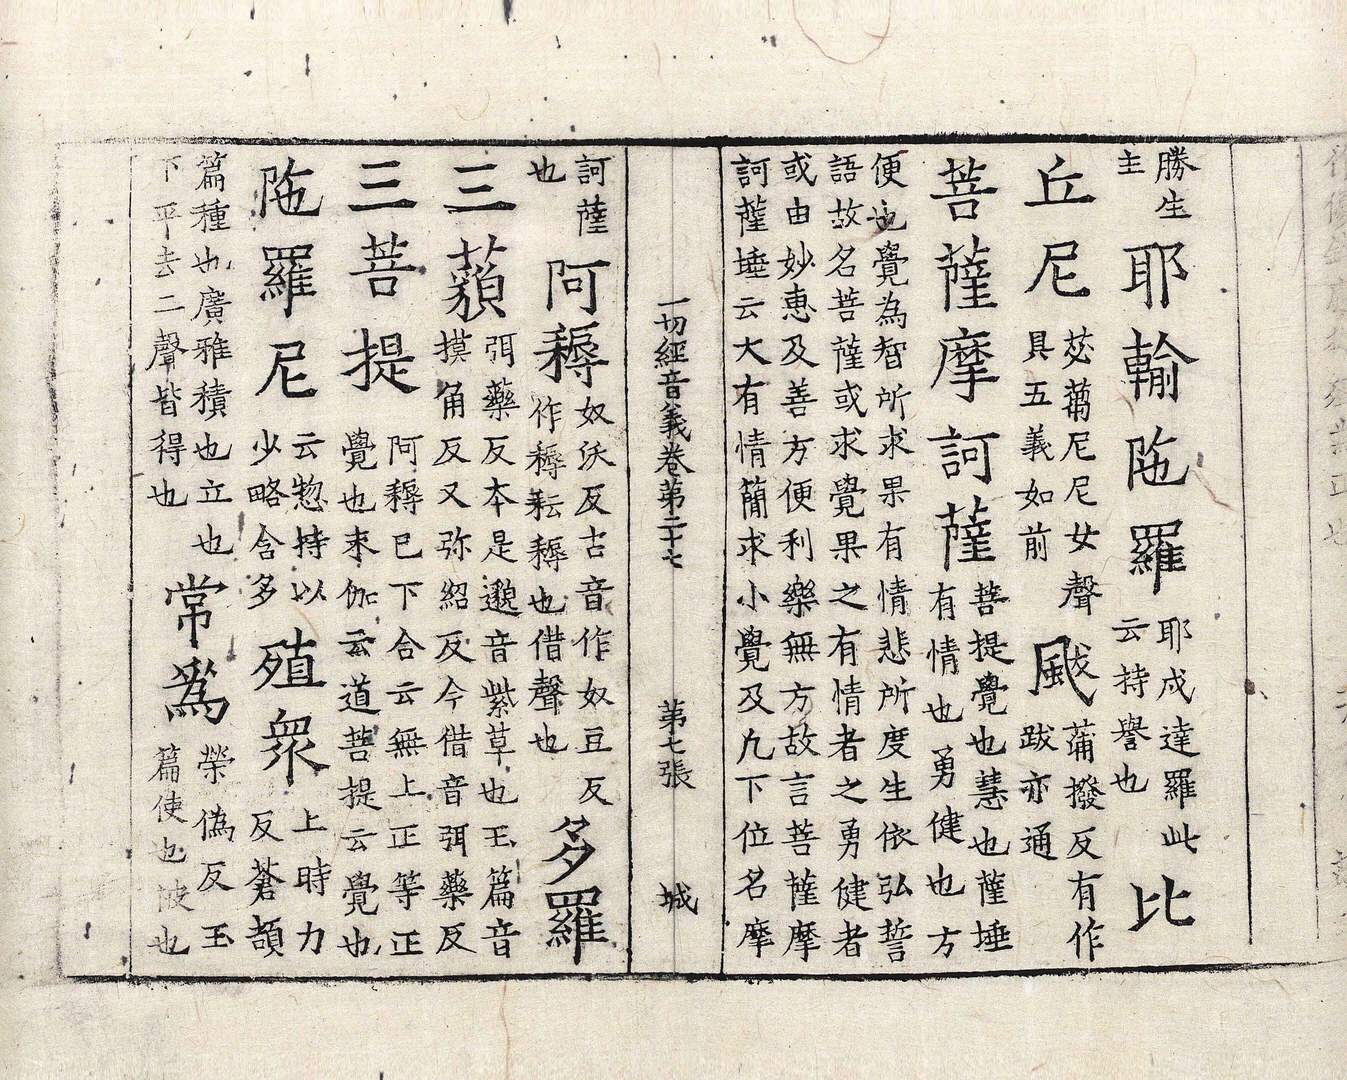 勝生主耶輸陁羅耶戍達羅此云持譽也比
丘尼苾蒭尼尼女聲具五義如前颰蒲撥反有作跋亦通
菩薩摩訶薩菩提覺也慧也薩埵有情也勇健也方
便也覺為智所求果有情悲所度生依弘誓
語故名菩薩或求覺果之有情者之勇健者
或由妙惠及善方便利樂無方故言菩薩摩
訶薩埵云大有情簡求小覺及九下位名摩
一切經音義卷第二十七 第七張 城
訶薩也阿耨奴沃反古音作奴豆反作耨耘耨也借聲也多羅
三藐弭藥反本是邈音紫草也玉篇音摸角反又弥紹反今借音弭藥反
三菩提阿耨已下合云無上正等正覺也末伽云道菩提云覺也
陁羅尼云惣持以少略含多殖衆上時力反蒼頡
篇種也廣雅積也立也下平去二聲皆得也常為榮偽反玉篇使也彼也